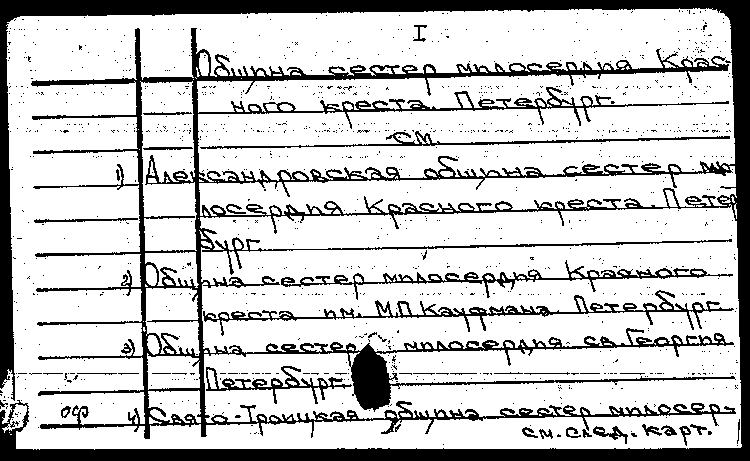 I
Община сестер милосердия Крас-
ного креста. Петербург.
см.
1) Александровская община сестер ми-
лосердия Красного креста. Петер-
бург.
2) Община сестер милосердия Красного
креста им. М.П. Кауфмана Петербург
3) Община сестер милосердия св. Георгия
Петербург
оф 4) Свято-Троицкая община сестер милосер-
см. след. карт.